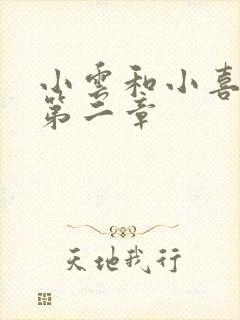 小雲和小喜
第二章
天地我行